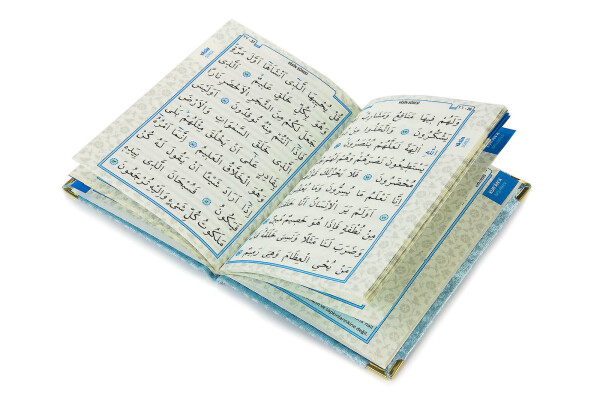 YÂSÎN SÛRESİ
وَلَهُمْ فِيهَا مَنَافِعُ وَمَشَارِبُ
يَشْكُرُونَ وَاتَّخَذُوا مِنْ
اللهِ اٰلِهَةً لَعَلَّهُمْ يُنْصَرُونَ
يَسْتَطِيعُونَ نَصْرَهُمْ وَهُمْ لَهُمْ
مُحْضَرُونَ فَلَا يَحْزُنْكَ
اِنَّا نَعْلَمُ مَا يُسِرُّونَ وَمَا
اَوَلَمْ يَرَ الْاِنْسَانُ اَنَّا
مِنْ نُطْفَةٍ فَاِذَا هُوَ خَصِيمٌ
وَضَرَبَ لَنَا مَثَلًا وَنَسِيَ خَلْقَهُ
مَنْ يُحْيِ الْعِظَامَ وَهِيَ رَمِيمٌ
YÂSÎN SÛRESİ
قُلْ يُحْيِيهَا الَّذِى اَنْشَاَهَا اَوَّلَ مَرَّةٍ
وَهُوَ بِكُلِّ خَلْقٍ عَلِيمٌ اَلَّذِى
جَعَلَ لَكُمْ مِنَ الشَّجَرِ الْاَخْضَرِ نَارًا
فَاِذَا اَنْتُمْ مِنْهُ تُوقِدُونَ اَوَلَيْسَ
الَّذِى خَلَقَ السَّمٰوَاتِ وَالْاَرْضَ
بِقَادِرٍ عَلٰى اَنْ يَخْلُقَ مِثْلَهُمْ بَلٰى
وَهُوَ الْخَلَّاقُ الْعَلِيمُ اِنَّمَا اَمْرُهُ
اِذَا اَرَادَ شَيْئًا اَنْ يَقُولَ لَهُ كُنْ
فَيَكُونُ فَسُبْحَانَ الَّذِى بِيَدِهِ
مَلَكُوتُ كُلِّ شَىْءٍ وَاِلَيْهِ تُرْجَعُونَ